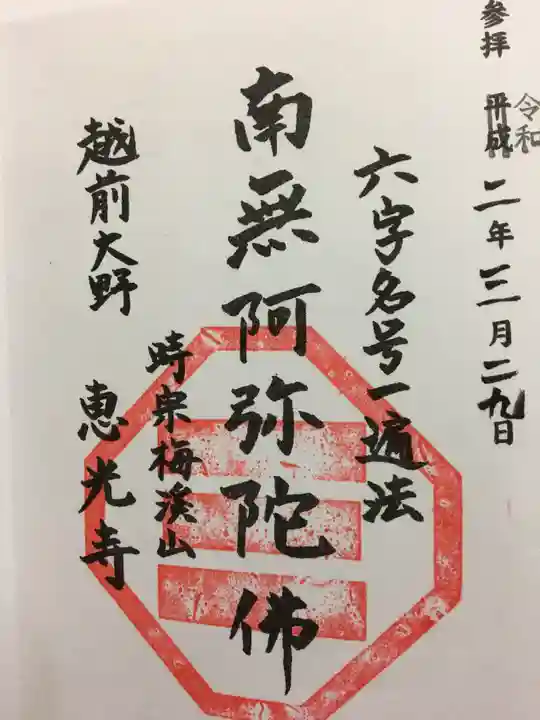 参拝 平成 令和 二年三月二九日
六字名号一遍法
南無阿弥陀佛
時宗梅渓山
越前大野 恵光寺